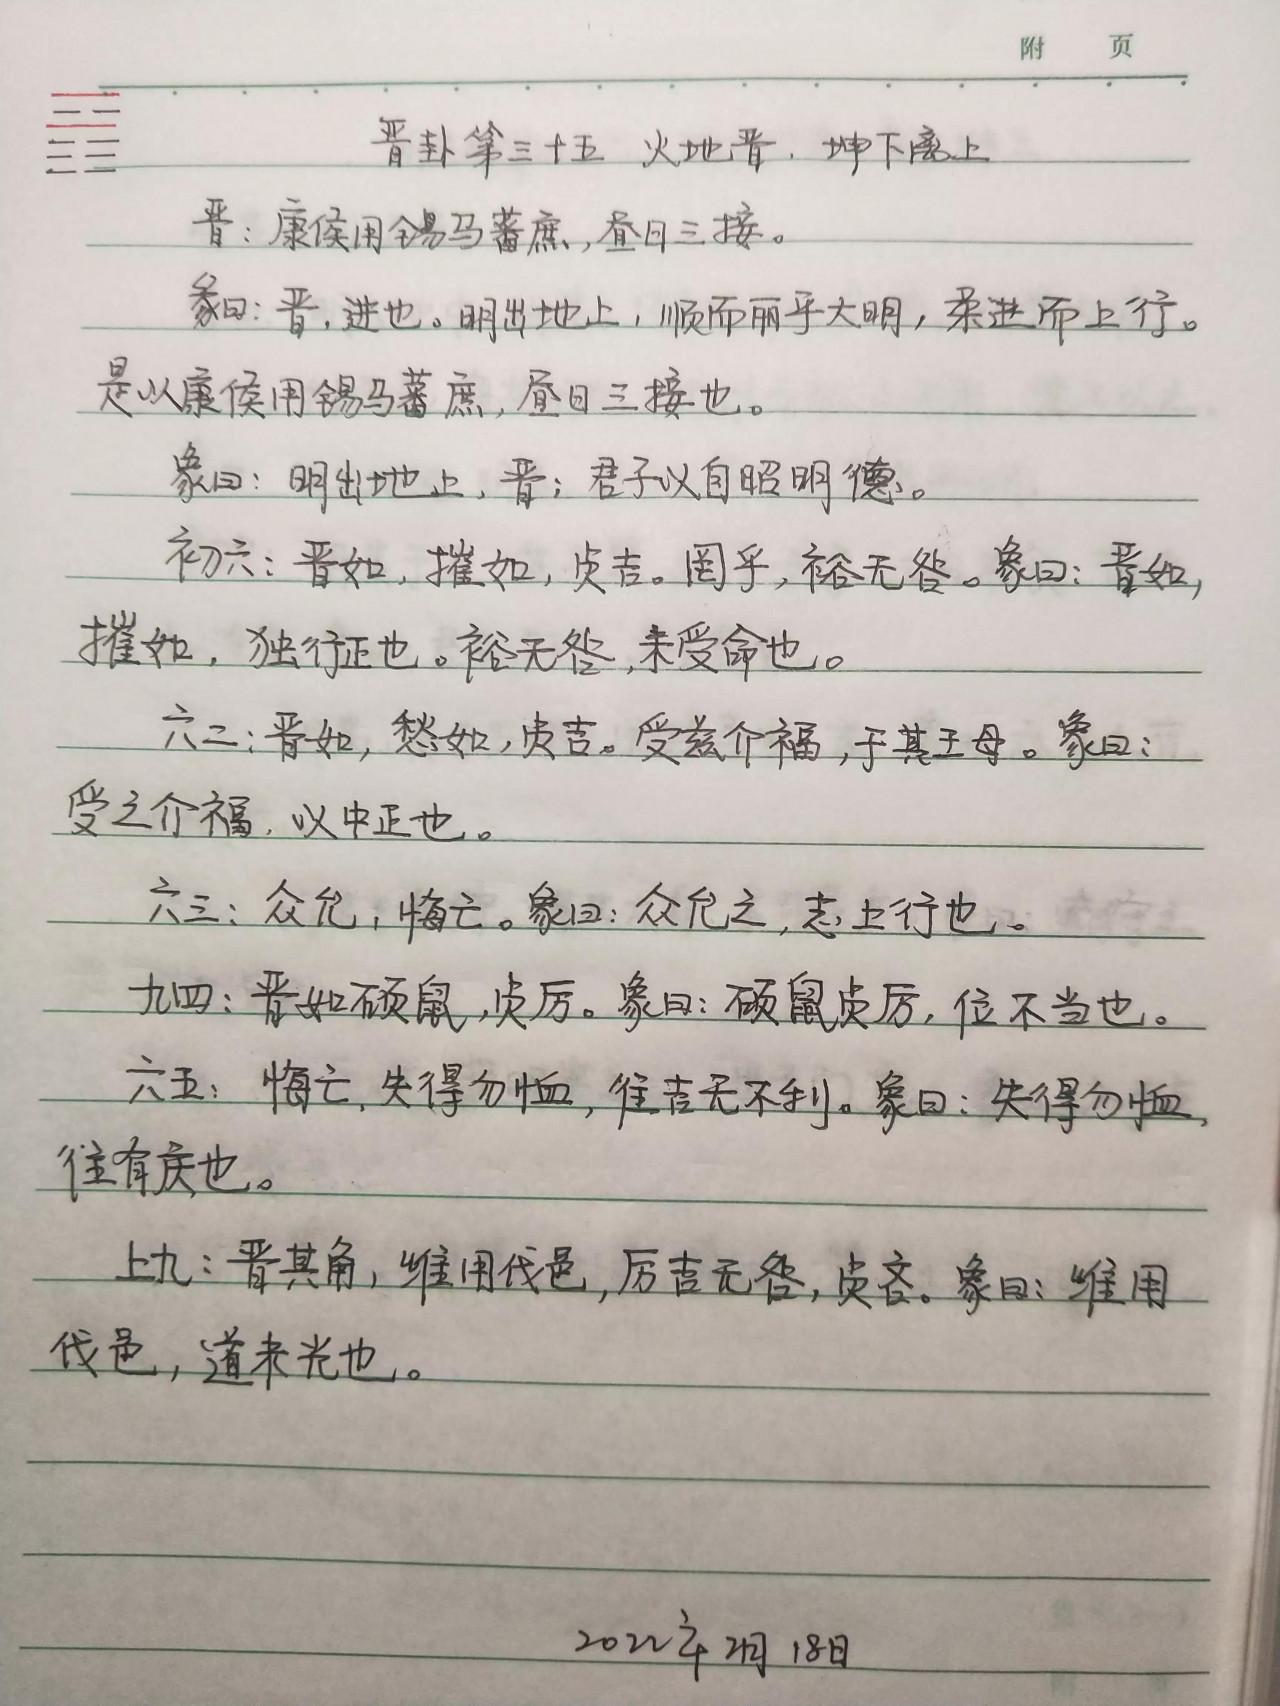 附 页
晋卦第三十五 火地晋．坤下离上
晋：康侯用锡马蕃庶，昼日三接。
彖曰：晋，进也。明出地上，顺而丽乎大明，柔进而上行。
是以康侯用锡马蕃庶，昼日三接也。
象曰：明出地上，晋；君子以自昭明德。
初六：晋如，摧如，贞吉。罔孚，裕无咎。象曰：晋如，
摧如，独行正也。裕无咎，未受命也。
六二：晋如，愁如，贞吉。受兹介福，于其王母。象曰：
受之介福，以中正也。
六三：众允，悔亡。象曰：众允之，志上行也。
九四：晋如硕鼠，贞厉。象曰：硕鼠贞厉，位不当也。
六五：悔亡，失得勿恤，往吉无不利。象曰：失得勿恤，
往有庆也。
上九：晋其角，维用伐邑，厉吉无咎，贞吝。象曰：维用
伐邑，道未光也。
2022年2月18日